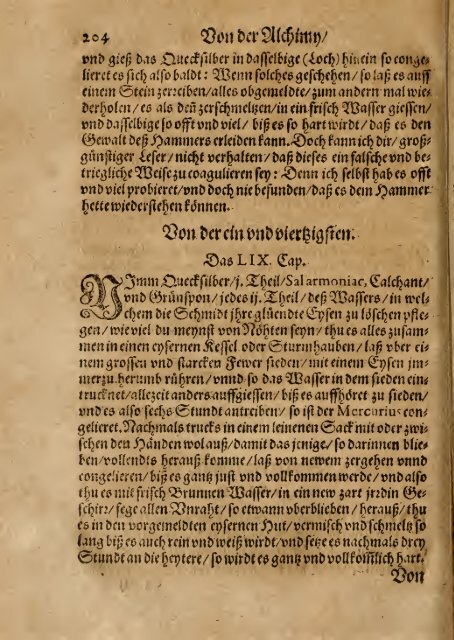 204 Von der Alchimy/
vnd gieß das Quecksilber in dasselbige (Loch) hinein so conge⸗
lieret es sich also baldt: Wenn solches geschehen/ so laß es auff
einem Stein zerreiben/ alles obgemeldte/ zum andern mal wie⸗
derholen/ es als deñ zerschmeltzen/ in ein frisch Wasser giessen/
vnd dasselbige so offt vnd viel/ biß es so hart wirdt/ daß es den
Gewalt deß Hammers erleiden kann. Doch kann ich dir/ groß⸗
günstiger Leser/ nicht verhalten/ daß dieses ein falsche vnd be⸗
triegliche Weise zu coagulieren sey: Denn ich selbst hab es offt
vnd viel probieret/ vnd doch nie befunden/ daß es dem Hammer
hette wiederstehen können.
Von der ein vnd viertzigsten.
Das LIX. Cap.
NImm Quecksilber/ j. Theil/ Salarmoniac, Calchant/
vnd Grünspon/ jedes ij. Theil/ deß Wassers/ in wel⸗
chem die Schmidt ihre glüendte Eysen zu löschen pfle⸗
gen/ wie viel du meynst von Nöhten seyn/ thu es alles zusam⸗
men in einen eysernen Kessel oder Sturmhauben/ laß vber ei⸗
nem grossen vnd starcken Fewer sieden/ mit einem Eysen jm⸗
merzu herumb rühren/ vnnd so das Wasser in dem sieden ein⸗
trucknet/ allezeit anders auffgiessen/ biß es auffhöret zu sieden/
vnd es also sechs Stundt antreiben/ so ist der Mercurius con⸗
gelieret. Nachmals trucks in einem leinenen Sack mit oder zwi⸗
schen den Händen wol auß/ damit das jenige/ so darinnen blie⸗
ben/ vollendts herauß komme/ laß von newem zergehen vnnd
congelieren/ biß es gantz just vnd vollkommen werde/ vnd also
thu es mit frisch Brunnen Wasser/ in ein new zart jrrdin Ge⸗
schirr/ fege allen Vnraht/ so etwann vberblieben/ herauß/ thu
es in den vorgemeldten eysernen Hut/ vermisch vnd schmeltz so
lang biß es auch rein vnd weiß wirdt/ vnd setze es nachmals drey
Stundt an die heytere/ so wirdt es gantz vnd vollkom̃lich hart.
Von